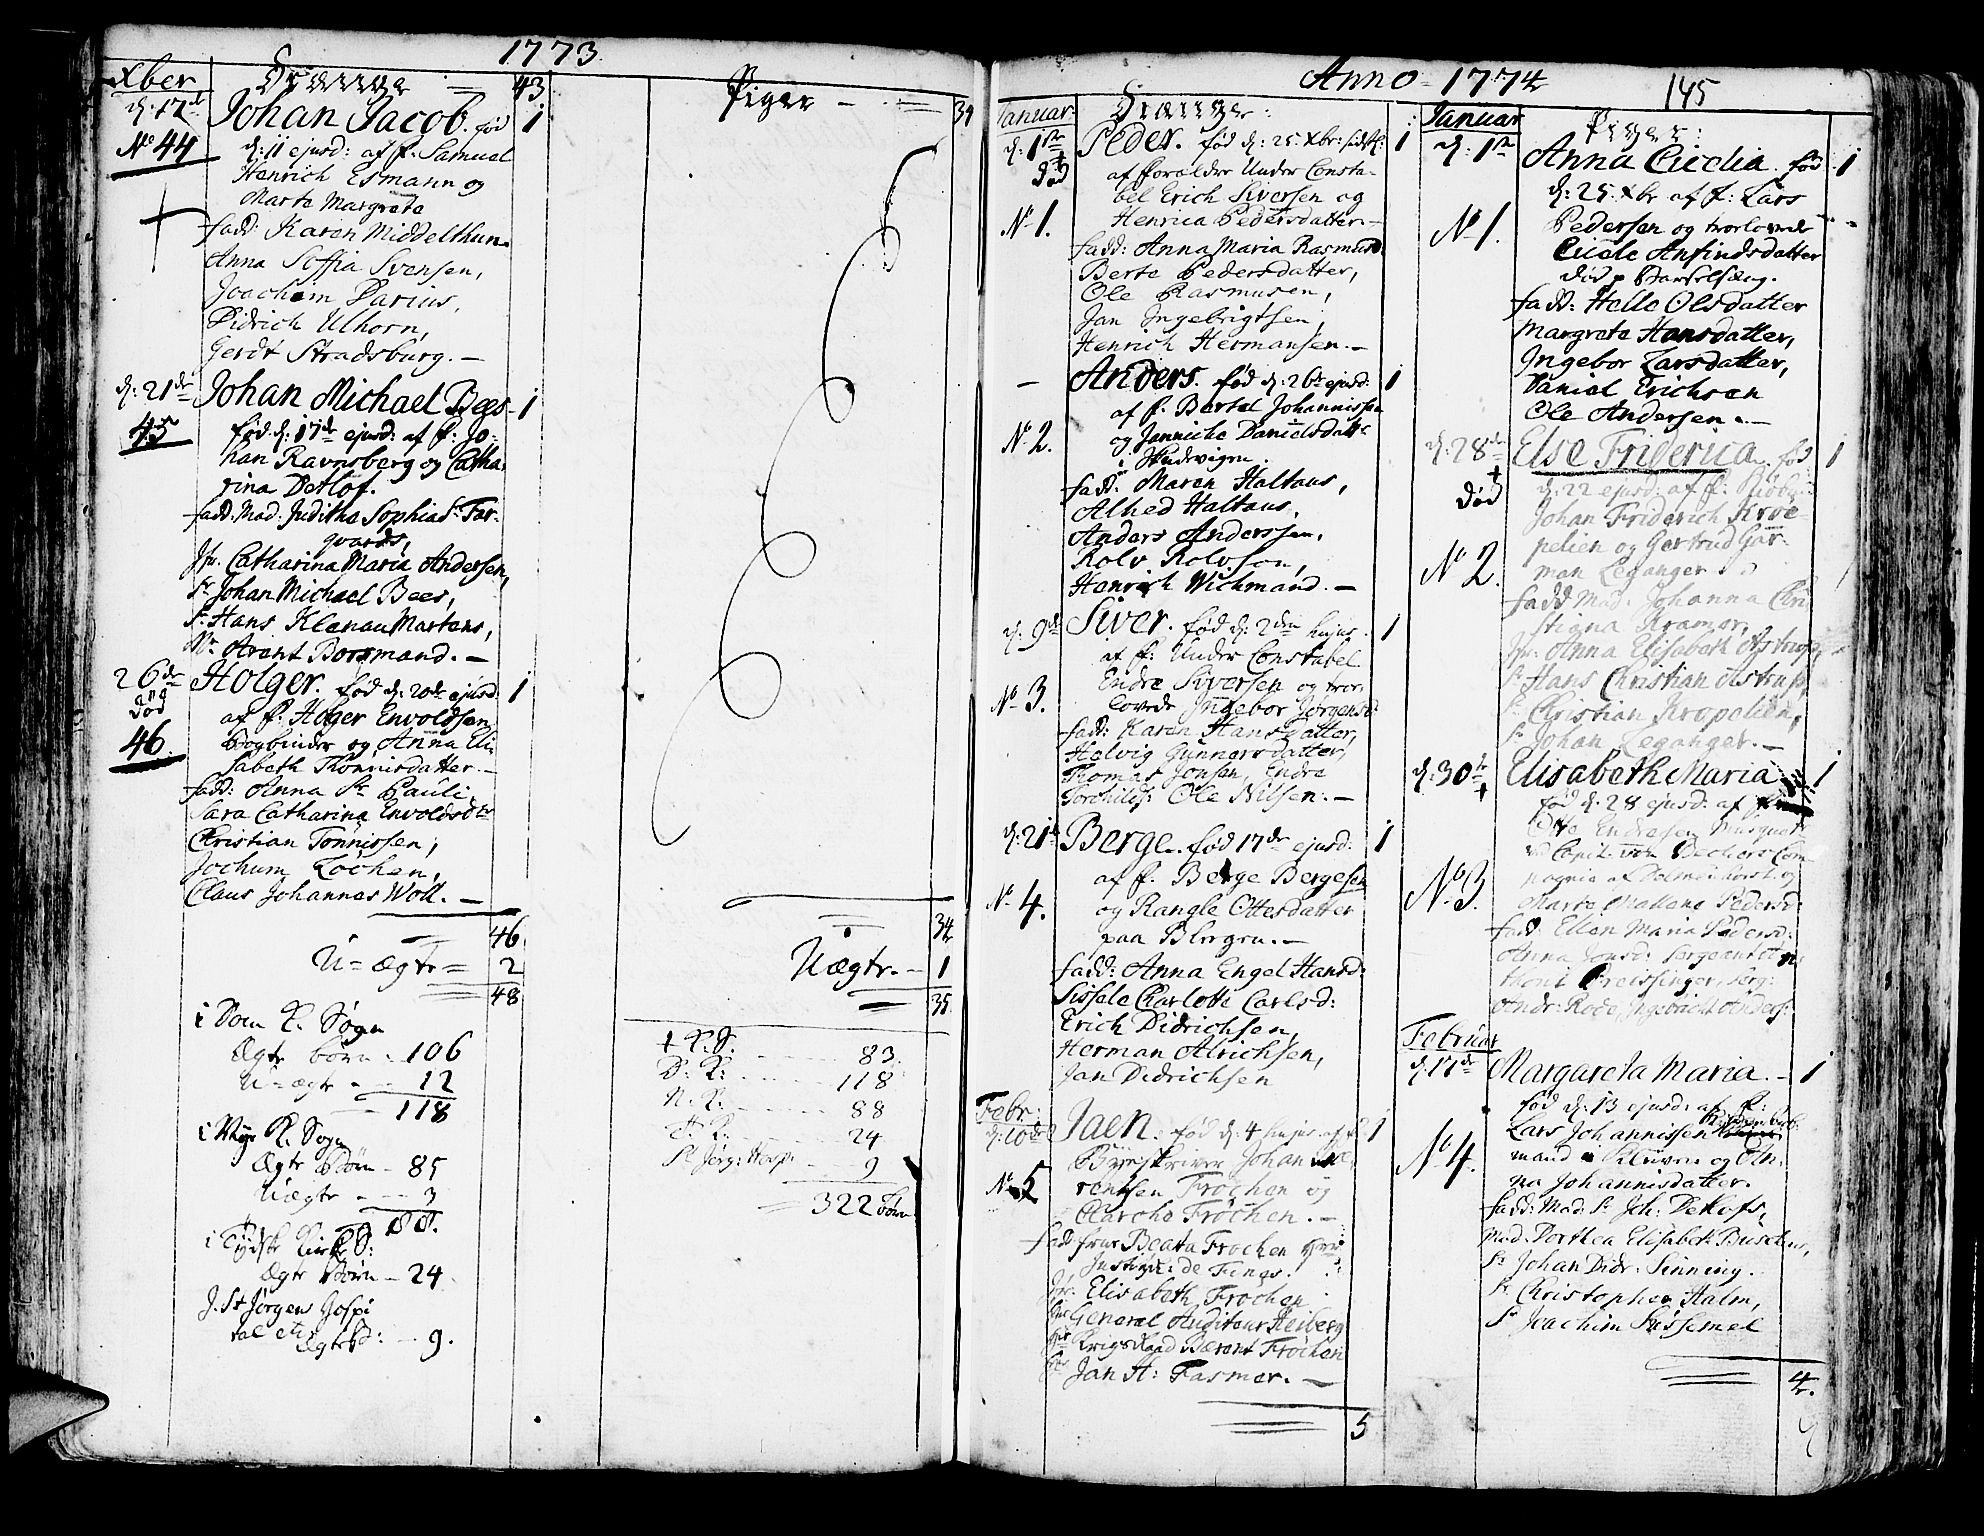 1773
Xber
Drænge
43
d: 17de
Johan Jacob. fød
1
No 44
d: 11 ejusd: af f. Samuel
Henrich Esmann og
Marte Margrete
fadd: Karen Middelthun
Anna Soffia Svensen,
Joachem Darius,
Didrich Ulhorn,
Gerdt Stradsburg. —
d: 21de
Johan Michael Bees
1
45
fød d: 17de ejusd: af f: Jo-
han Ravnsberg og Catha-
rina Detlof.
fadd. Mad: Juditha Sophia Sr Far-
gvards,
Jfr. Catharina Maria Andersen,
Sr Johan Michael Bees,
Sr Hans Klenau Martens,
Mr Arent Borsmand. —
26de
død
46.
Holger. fød d: 20de ejusd:
1
af f. Holger Envoldsen
Bogbinder og Anna Eli-
sabeth Tönnisdatter. —
fadd: Anna Sr Pauli
Sara Catharina Envoldsdtr
Christian Tönnissen,
Jochum Löchen,
Claus Johannes Woll. —
46.
U=Ægte = 2
48
i Dom K. Sogn
Ægte börn - 106
U=ægte - 12
118
i Nye K. Sogn
Ægte Börn - 85
Uægte - 3
88.
i Tydske Kirke S:
Ægte Börn - 24.
J. St Jörgens Hospi
tal etc
Ægte B: - 9.
Piger
34
34
Uægte. - 1
35.
+ K. S: 83.
D: K: 118
N. K: 88
T. K: 24
St Jörg: Hosp: 9
322 Börn
Anno 1774
145
Januar
Drænge:
d: 1ste
død
No 1.
Peder. fød d: 25 Xbr: sidstl:
1
af forældre Under Consta-
bel Erich Siversen og
Henrica Pedersdatter —
fadd: Anna Maria Rasmusd:
Berte Pedersdatter,
Ole Rasmusen,
Jan Ingebrigtsen,
Henrich Hermansen. —
—
No 2.
Anders. fød d: 26de ejusd:
1
af f. Bertel Johannissen
og Janniche Danielsdatter
i Skudevigen.
fadd: Maren Haltaus,
Alhed Haltaus,
Anders Anderssen,
Rolv Rolvsen,
Henrich Wichmand. —
d: 9de
No 3.
Siver. fød d: 2den hujus
1
af f: Under Constabel
Endre Siversen og tro-
lovede Ingebor Jörgensd:
fadd: Karen Hansdatter,
Helvig Gunnersdatter,
Thomas Jonsen, Endre
Torchilds: Ole Nilsen. —
d: 21de
No 4.
Berge. fød 17de ejusd:
1
af f. Berge Bergesen
og Rangle Ottesdatter
paa Blegen. —
fadd: Anna Engel Hansd:
Sissele Charlotte Carlsd:
Erich Didrichsen,
Herman Alrichsen,
Jan Didrichsen
Febr:
d: 10de
No 5
Jaen. fød d: 4 hujus af f.
1
Byeskriver Johan Lo-
rentsen Frochen og
Clarche Frochen. —
fadd frue Beata Frochen Hrr
Justitz: de Fines.
Jfr: Elisabeth Frochen
Hr General Auditeur Heiberg
Hr Krigs Raad Berent Frochen
Sr Jan H: Fasmer. —
5
Januar
Piger:
d: 1ste
No 1.
Anna Cicelia. fød
1
d: 25 Xbr af f. Lars
Pedersen og trolovede
Cicele Ansindsdatter
død p Barselseng.
fadd: Helle Olsdatter
Margrete Hansdatter,
Ingebor Larsdatter,
Daniel Erichsen
Ole Andersen. —
d: 28de
+
død
No 2.
Else Friderica. fød
1
d: 22 ejusd: af f. Kiöbm:
Johan Friderich Kroe-
pelien og Gertrud Gar-
man Leganger
fadd Mad. Johanna Chri
stiana Kramer,
Jfr: Anna Elisabeth Astrup,
Sr Hans Christian Astrup
Sr Christian Kropelien,
Sr Johan Leganger. —
d: 30te
+
No 3.
Elisabeth Maria
1
fød d. 28 ejusd: af f:
Otte Endresen Musquet:
v. Capit. von Bechers Com-
pagnie af Delmenhorst: og
Marte Mallene Pedersd:
fadd: Ellen Maria Pedersd:
Anna Jonsd: Sergeant An
thoni Preissinger, Serg:
Andr: Rode, Ingebricht Anders:
Februar
d: 17de
No 4.
Margareta Maria. -
1
fød d: 13 ejusd: af f:
Lars Johannissen
mand i Kluven og An-
na Johannisdatter.
fadd: Mad: Sr Joh: Detlofs,
Mad. Dorthea Elisabeth Buschens,
Sr Johan Didr: Sinning.
Sr Christopher Halm,
Sr Joachim Süssemel
4.